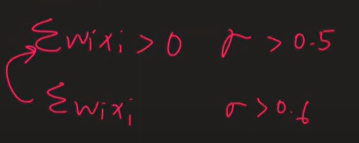 Σwixi > 0 σ > 0.5
Σwixi σ > 0.6